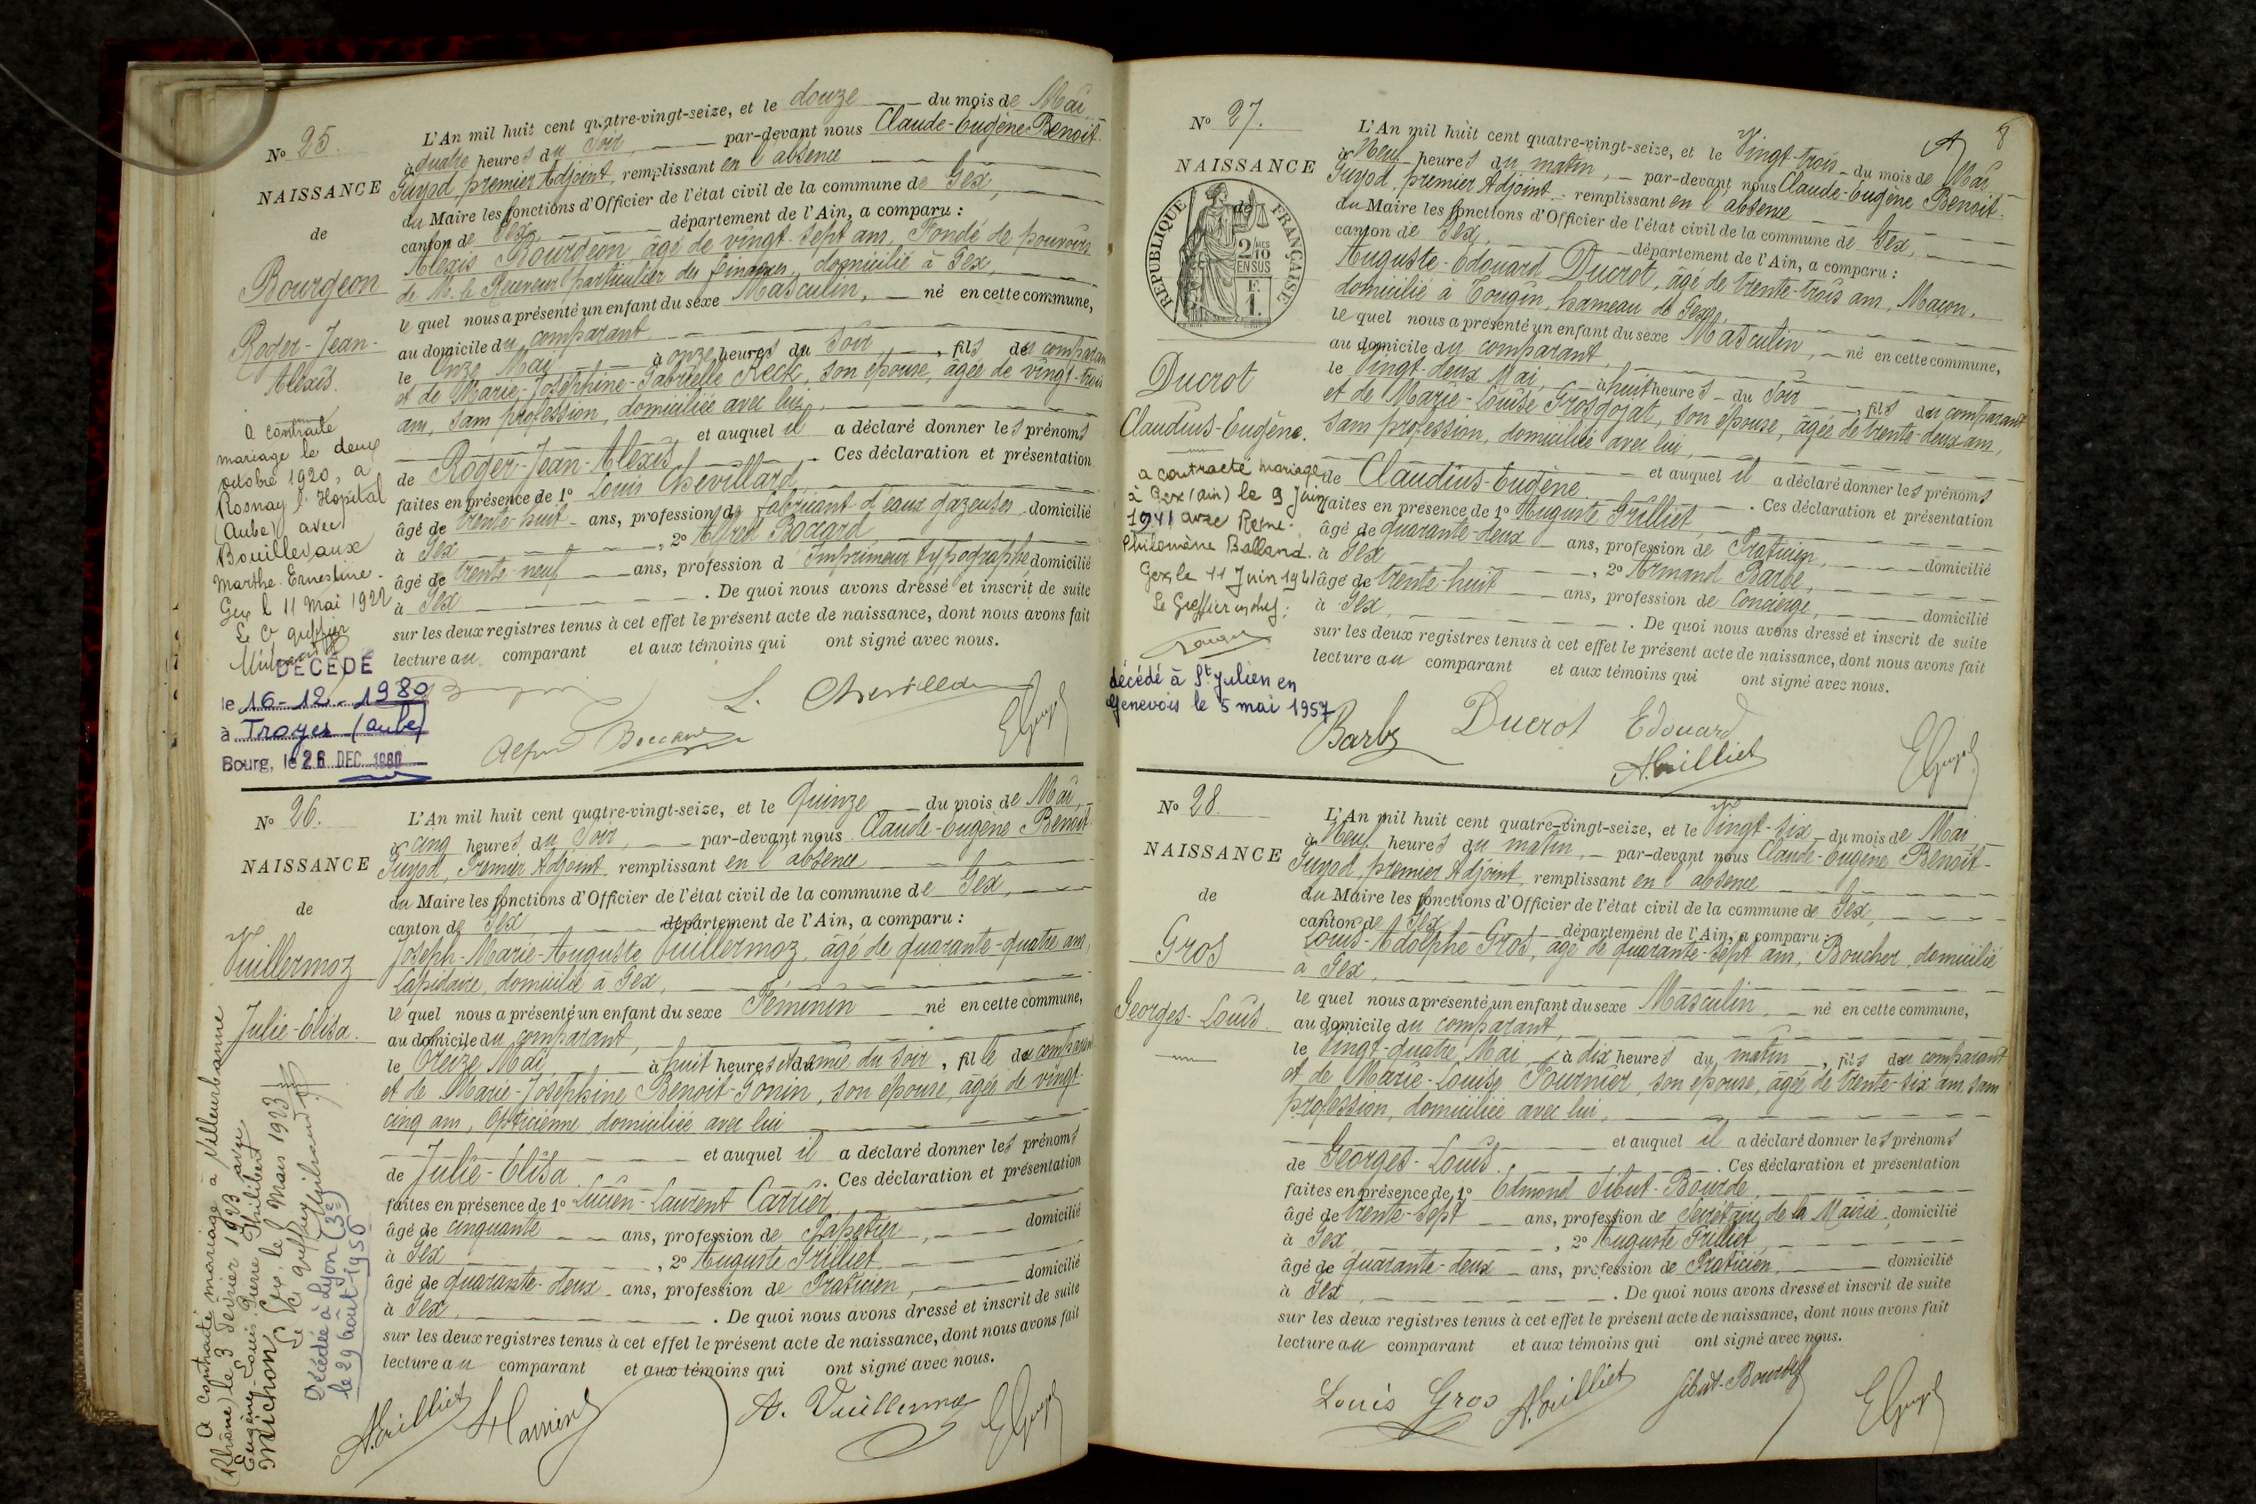 N° 25.
NAISSANCE
de
Bourgeon
Roger-Jean-
Alexis.
a contracté
mariage le deux
octobre 1920, à
Rosnay l'Hopital
(Aube) avec
Bouillevaux
Marthe-Ernestine-
Gex l 11 Mai 1922
Le Cs greffier
DÉCÉDÉ
le 16-12-1980
à Troyes (aube)
Bourg, le 26 DEC. 1980
L'An mil huit cent quatre-vingt-seize, et le douze du mois de Mai
à quatre heures du soir, par-devant nous Claude-Eugène Benoit-
Guyod, premier Adjoint, remplissant en l'absence
du Maire les fonctions d'Officier de l'état civil de la commune de Gex,
canton de Gex département de l'Ain, a comparu :
Alexis Bourgeon, âgé de vingt-sept ans, Fondé de pouvoirs
de M. le Receveur particulier des finances, domicilié à Gex,
le quel nous a présenté un enfant du sexe Masculin, né en cette commune,
au domicile du comparant
le Onze Mai à onze heures du soir, fils du comparant
et de Marie-Joséphine-Gabrielle Reck, son épouse, âgée de vingt-trois
ans, sans profession, domiciliée avec lui,
et auquel il a déclaré donner les prénoms
de Roger-Jean-Alexis. Ces déclaration et présentation
faites en présence de 1° Louis Chevillard
âgé de trente-huit ans, profession de fabricant d'eaux gazeuses domicilié
à Gex, 2° Alfred Boccard
âgé de trente-neuf ans, profession d'Imprimeur typographe domicilié
à Gex. De quoi nous avons dressé et inscrit de suite
sur les deux registres tenus à cet effet le présent acte de naissance, dont nous avons fait
lecture au comparant et aux témoins qui ont signé avec nous.
L. Chevillard
Alfred Boccard
EGuyod
N° 26.
NAISSANCE
de
Vuillermoz
Julie-Elisa.
A contracté mariage à Villeurbanne
(Rhône) le 3 Février 1923 avec
Eugène-Louis-Pierre Philibert
MICHON Gex, le Mars 1923
Le Cs greffier
Décédée à Lyon (3e)
le 29 août 1950
L'An mil huit cent quatre-vingt-seize, et le Quinze du mois de Mai,
à cinq heures du soir, par-devant nous Claude-Eugène Benoit-
Guyod, Premier Adjoint, remplissant en l'absence
du Maire les fonctions d'Officier de l'état civil de la commune de Gex,
canton de Gex département de l'Ain, a comparu :
Joseph-Marie-Auguste Vuillermoz, âgé de quarante-quatre ans,
Lapidaire, domicilié à Gex,
le quel nous a présenté un enfant du sexe Féminin né en cette commune,
au domicile du comparant,
le Treize Mai, à huit heures et demie du soir, fille du comparant
et de Marie-Joséphine Benoit-Gonin, son épouse, âgée de vingt-
cinq ans, Opticienne, domiciliée avec lui
et auquel il a déclaré donner les prénoms
de Julie-Elisa. Ces déclaration et présentation
faites en présence de 1° Lucien-Laurent Carrier,
âgé de cinquante ans, profession de Papetier, domicilié
à Gex, 2° Auguste Grilliet
âgé de quarante-deux ans, profession de Praticien, domicilié
à Gex. De quoi nous avons dressé et inscrit de suite
sur les deux registres tenus à cet effet le présent acte de naissance, dont nous avons fait
lecture au comparant et aux témoins qui ont signé avec nous.
A. Grilliet A. Vuillermoz EGuyod
8
N° 27.
NAISSANCE
de
RÉPUBLIQUE FRANÇAISE
2/10
EN SUS
F.
1.
Ducrot
Claudius-Eugène.
a contracté mariage
à Gex (ain) le 9 Juin
1941 avec Reine-
Philomène Balland.
Gex, le 11 Juin 1941
Le Greffier en chef:
décédé à St Julien en
Genevois le 5 mai 1957
L'An mil huit cent quatre-vingt-seize, et le Vingt-trois du mois de Mai
à Neuf heures du matin, par-devant nous Claude-Eugène Benoit-
Guyod, premier Adjoint remplissant en l'absence
du Maire les fonctions d'Officier de l'état civil de la commune de Gex,
canton de Gex, département de l'Ain, a comparu :
Auguste-Edouard Ducrot, âgé de trente-trois ans, Maçon,
domicilié à Tougin, hameau de Gex,
le quel nous a présenté un enfant du sexe Masculin, né en cette commune,
au domicile du comparant,
le Vingt-deux Mai, à huit heures du soir, fils du comparant
et de Marie-Louise Grosgojat, son épouse, âgée de trente-deux ans,
sans profession, domiciliée avec lui,
et auquel il a déclaré donner les prénoms
de Claudius-Eugène. Ces déclaration et présentation
faites en présence de 1° Auguste Grilliet
âgé de quarante-deux ans, profession de Praticien, domicilié
à Gex, 2° Armand Barbe,
âgé de trente-huit ans, profession de Concierge, domicilié
à Gex,. De quoi nous avons dressé et inscrit de suite
sur les deux registres tenus à cet effet le présent acte de naissance, dont nous avons fait
lecture au comparant et aux témoins qui ont signé avec nous.
Barbe Ducrot Edouard
A. Grilliet EGuyod
N° 28.
NAISSANCE
de
Gros
Georges-Louis.
L'An mil huit cent quatre-vingt-seize, et le Vingt-six du mois de Mai
à Neuf heures du matin, par-devant nous Claude-Eugène Benoit-
Guyod, premier Adjoint, remplissant en l'absence
du Maire les fonctions d'Officier de l'état civil de la commune de Gex,
canton de Gex département de l'Ain, a comparu :
Louis-Adolphe Gros, âgé de quarante-sept ans, Boucher, domicilié
à Gex,
le quel nous a présenté un enfant du sexe Masculin, né en cette commune,
au domicile du comparant,
le Vingt-quatre Mai, à dix heures du matin, fils du comparant
et de Marie-Louise Fournier, son épouse, âgée de trente-six ans, sans
profession, domiciliée avec lui,
et auquel il a déclaré donner les prénoms
de Georges-Louis. Ces déclaration et présentation
faites en présence de 1° Edmond Sibut-Bourde,
âgé de trente-sept ans, profession de Secrétaire de la Mairie, domicilié
à Gex, 2° Auguste Grilliet,
âgé de quarante-deux ans, profession de Praticien, domicilié
à Gex,. De quoi nous avons dressé et inscrit de suite
sur les deux registres tenus à cet effet le présent acte de naissance, dont nous avons fait
lecture au comparant et aux témoins qui ont signé avec nous.
Louis Gros A. Grilliet Sibut-Bourde EGuyod